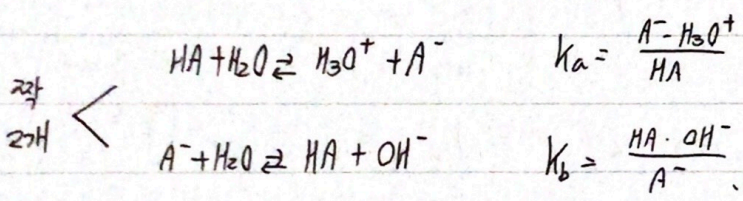 HA + H₂O ⇄ H₃O⁺ + A⁻ Ka = A⁻ · H₃O⁺ / HA
짝 2개 <
A⁻ + H₂O ⇄ HA + OH⁻ Kb = HA · OH⁻ / A⁻